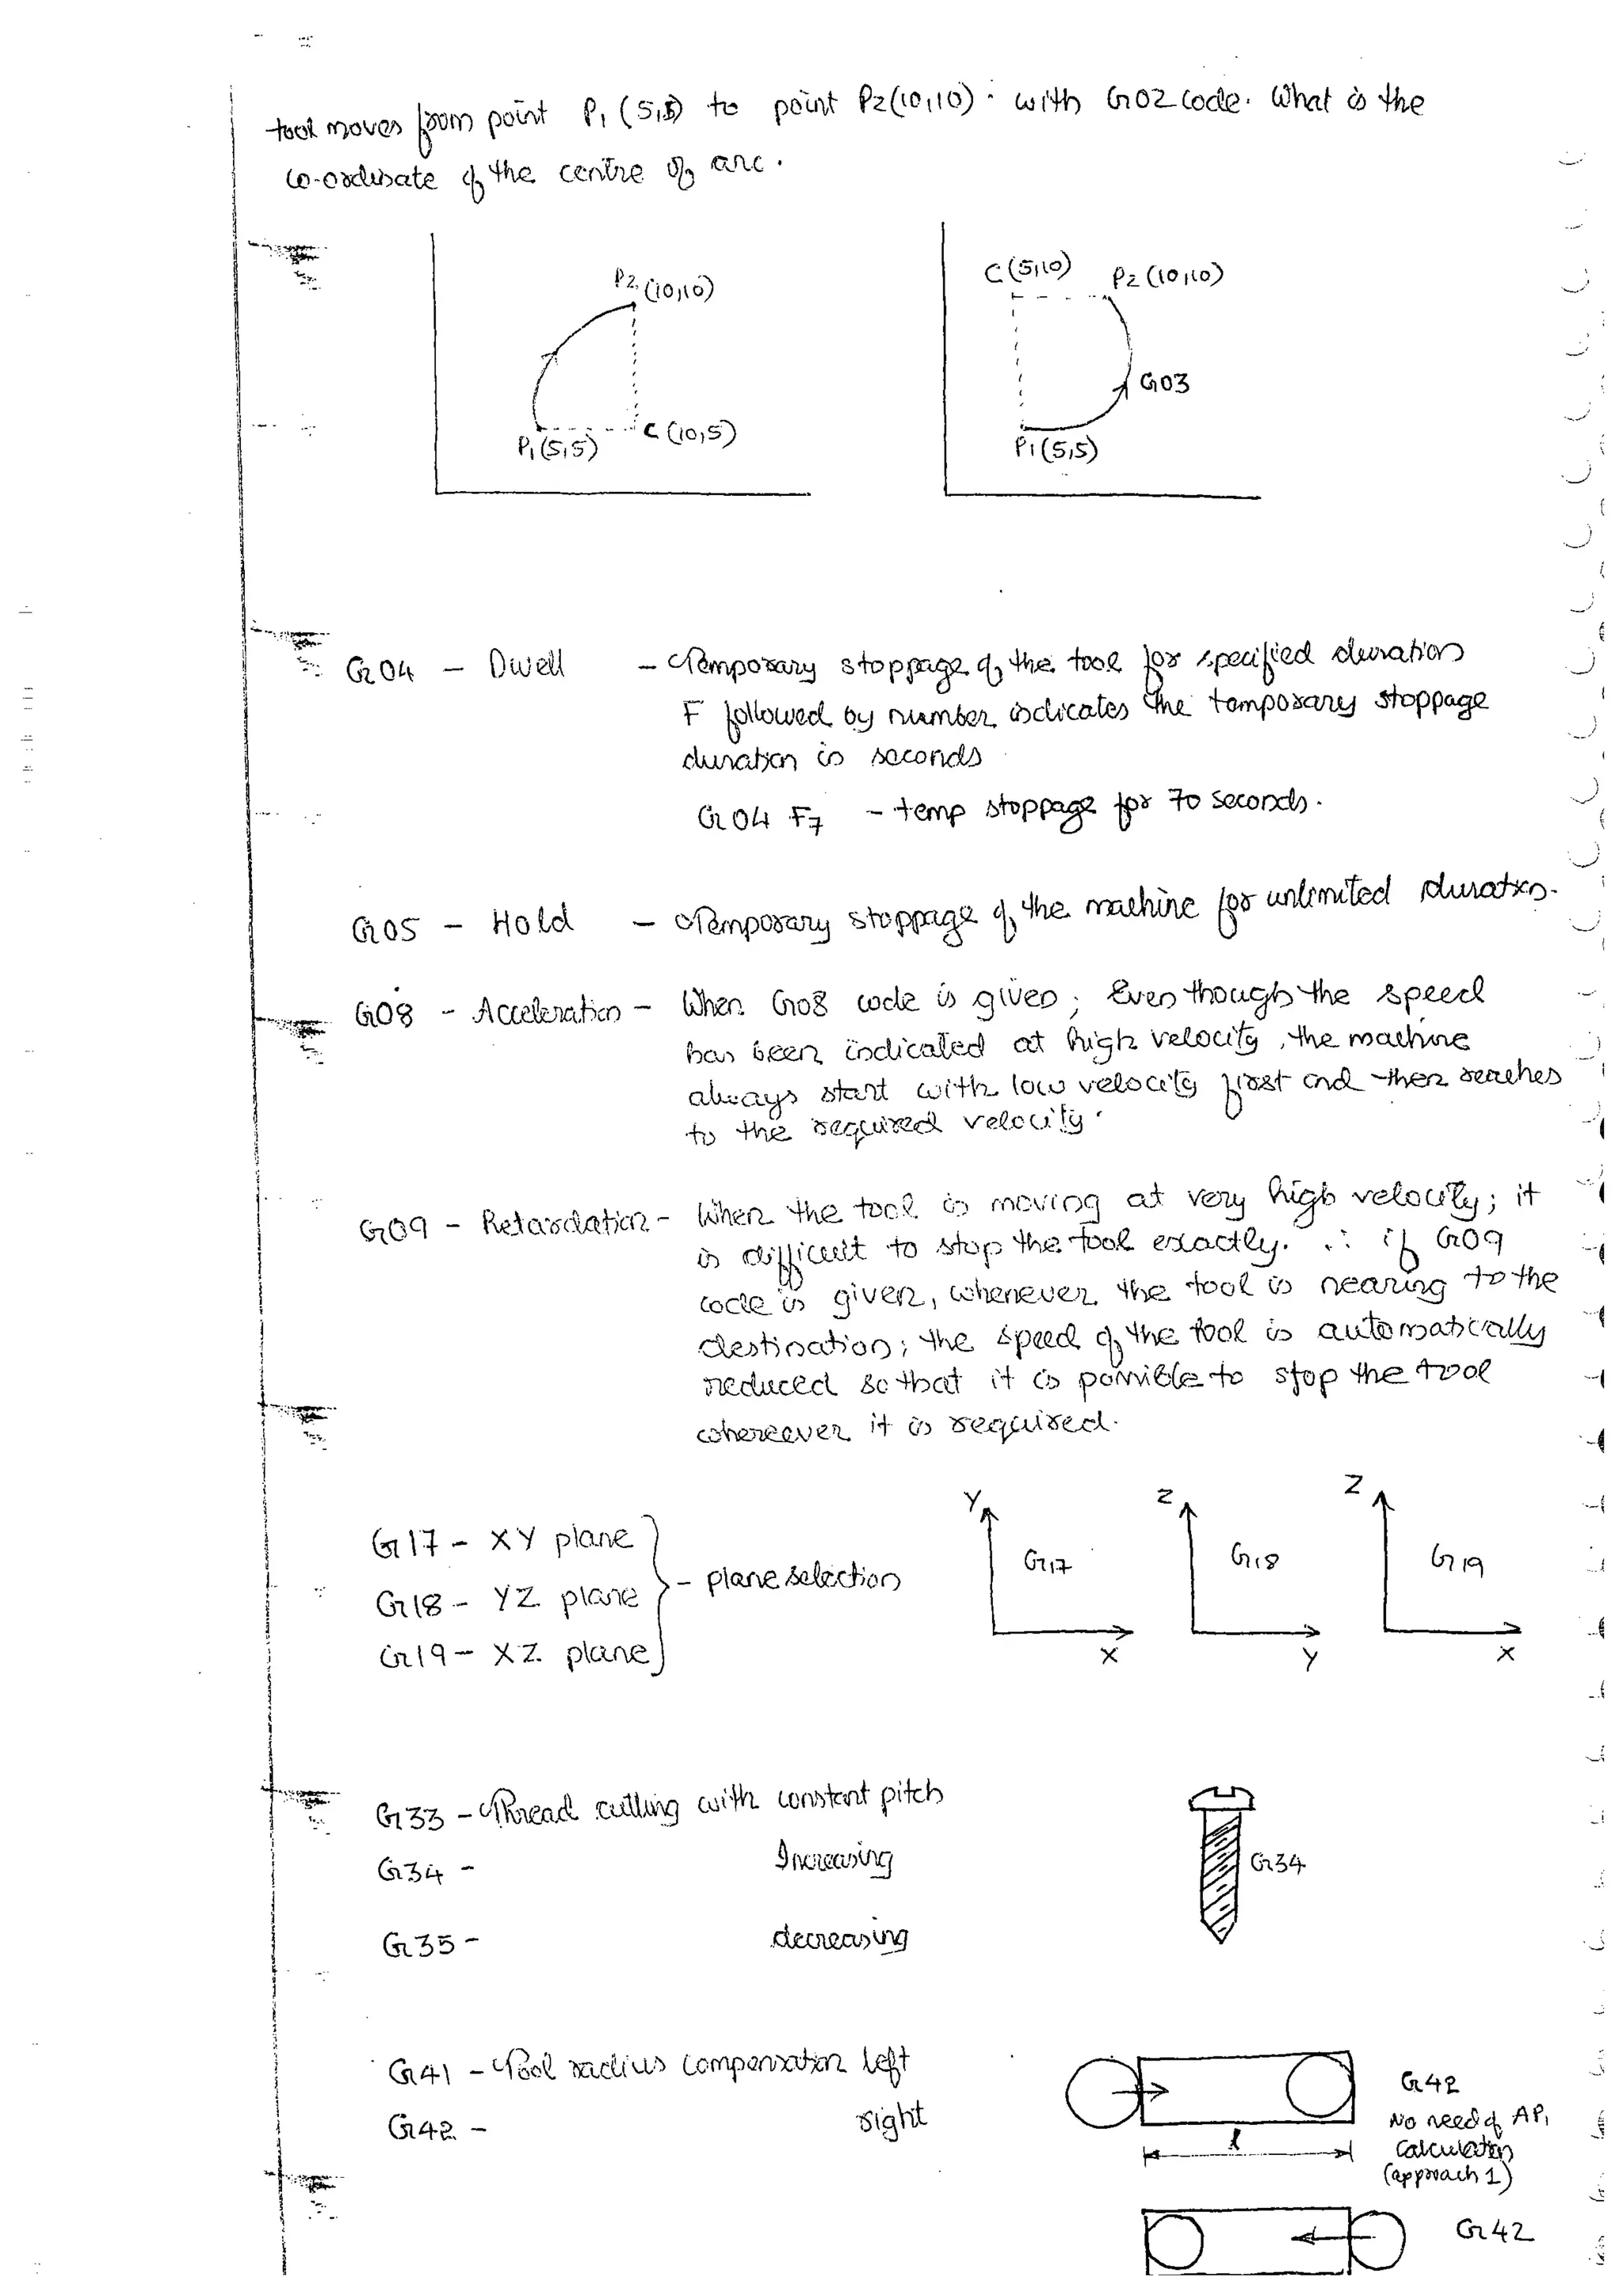 tool moves from point P1 (5,5) to point P2(10,10) . with G02 code. What is the
co-ordinate of the centre of arc.
P2 (10,10)
C (10,5)
P1(5,5)
C(5,10) P2(10,10)
G03
P1(5,5)
G04 - Dwell - Temporary stoppage of the tool for specified duration
F followed by number indicates the temporary stoppage
duration in seconds
G04 F7 - temp stoppage for 70 seconds.
G05 - Hold - Temporary stoppage of the machine for unlimited duration.
G08 - Acceleration - When G08 code is given ; Even though the speed
has been indicated at high velocity, the machine
always start with low velocity first and then reaches
to the required velocity.
G09 - Retardation - When the tool is moving at very high velocity; it
is difficult to stop the tool exactly. ∴ if G09
code is given, whenever the tool is nearing to the
destination; the speed of the tool is automatically
reduced so that it is possible to stop the tool
whereever it is required.
G17 - XY plane
G18 - YZ plane - plane selection
G19 - XZ plane
Y G17 X
Z G18 Y
Z G19 X
G33 - Thread cutting with constant pitch
G34 - Increasing
G35 - decreasing
G34
G41 - Tool radius compensation left
G42 - right
G42
No need of AP1
Calculation
(approach 1)
l
G42